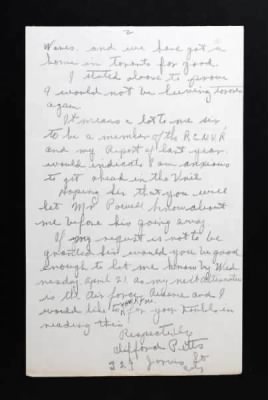 2
Waves. and we have got a
home in toronto for good.
I stated above to prove
I would not be leaving toronto
again.
It means a lot to me sir
to be a member of the R C N V R
and my Report of last year
would indicate I am anxious
to get ahead in the Unit
Hoping sir that you will
let Mr Powell know about
me before his going away
If my request is not to be
granted sir would you be good
enough to let me know by Wed
nesday april 21 as my next
is the air force and I
would like for your trouble in
reading this.
Respectfully
Clifford
St
City